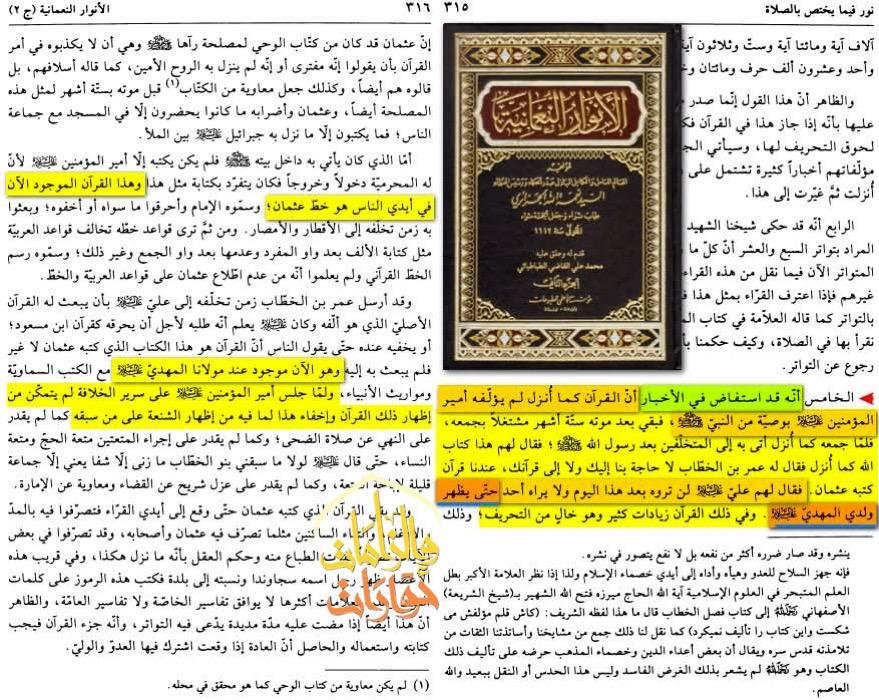 نور فيما يختص بالصلاة
٣١٥
آلاف آية ومائتا آية وستّ وثلاثون آية
وأحد وعشرون ألف حرف ومائتان
والظاهر أنّ هذا القول إنّما صدر
عليها بأنّه إذا جاز هذا في القرآن
لحوق التحريف لها، وسيأتي
مؤلّفاتهم أخباراً كثيرة تشتمل على
أُنزلت ثمّ غيّرت إلى هذا.
الرابع أنّه قد حكى شيخنا الشهيد
المراد بتواتر السبع والعشر أنّ كلّ ما
المتواتر الآن فيما نقل من هذه
غيرهم فإذا اعترف القرّاء بمثل هذا
بالتواتر كما قاله العلّامة في كتاب
نقرأ بها في الصلاة، وكيف حكمنا
رجوع عن التواتر.
الأنوار النعمانية
السيد نعمة الله الجزائري
المتوفى سنة ١١١٢
قدم له وعلق عليه
محمد علي القاضي الطباطبائي
الجزء الثاني
الخامس أنّه قد استفاض في الأخبار أنّ القرآن كما أُنزل لم يؤلّفه أمير
المؤمنين عليه السلام بوصيّة من النبيّ ﷺ، فبقي بعد موته ستّة أشهر مشتغلاً بجمعه،
فلمّا جمعه كما أُنزل أتى به إلى المتخلّفين بعد رسول الله ﷺ؛ فقال لهم هذا كتاب
الله كما أُنزل فقال له عمر بن الخطّاب لا حاجة بنا إليك ولا إلى قرآنك، عندنا قرآن
كتبه عثمان. فقال لهم عليّ عليه السلام لن تروه بعد هذا اليوم ولا يراه أحد حتّى يظهر
ولدي المهديّ عليه السلام. وفي ذلك القرآن زيادات كثير وهو خالٍ من التحريف؛ وذلك
ينشره وقد صار ضرره أكثر من نفعه بل لا نفع يتصور في نشره.
فإنه جهز السلاح للعدو وهيأه وأداه إلى أيدي خصماء الإسلام ولذا إذا نظر العلامة الأكبر بطل
العلم المتبحر في العلوم الإسلامية آية الله الحاج ميرزه فتح الله الشهير بـ(شيخ الشريعة)
الأصفهاني إلى كتاب فصل الخطاب قال ما هذا لفظه الشريف: (كاش قلم مؤلفش مى
شكست واين كتاب را تأليف نميكرد) كما نقل لنا ذلك جمع من مشايخنا وأساتذتنا الثقات من
تلامذته قدس سره ويقال أن بعض أعداء الدين وخصماء المذهب حرضه على تأليف ذلك
الكتاب وهو لم يشعر بذلك الغرض الفاسد وليس هذا الحدس أو النقل ببعيد والله
العاصم.
٣١٦
الأنوار النعمانية (ج ٢)
إنّ عثمان قد كان من كتّاب الوحي لمصلحة رآها ﷺ وهي أن لا يكذبوه في أمر
القرآن بأن يقولوا إنّه مفترى أو إنّه لم ينزل به الروح الأمين، كما قاله أسلافهم، بل
قالوه هم أيضاً، وكذلك جعل معاوية من الكتّاب(١) قبل موته بستّة أشهر لمثل هذه
المصلحة أيضاً، وعثمان وأضرابه ما كانوا يحضرون إلّا في المسجد مع جماعة
الناس؛ فما يكتبون إلّا ما نزل به جبرائيل عليه السلام بين الملأ.
أمّا الذي كان يأتي به داخل بيته ﷺ فلم يكن يكتبه إلّا أمير المؤمنين عليه السلام لأنّ
له المحرميّة دخولاً وخروجاً فكان يتفرّد بكتابة مثل هذا وهذا القرآن الموجود الآن
في أيدي الناس هو خطّ عثمان؛ وسمّوه الإمام وأحرقوا ما سواه أو أخفوه؛ وبعثوا
به زمن تخلّفه إلى الأقطار والأمصار. ومن ثمّ ترى خطّه تخالف قواعد العربيّة
مثل كتابة الألف بعد واو المفرد وعدمها بعد واو الجمع وغير ذلك؛ وسمّوه رسم
الخطّ القرآني ولم يعلموا أنّه من عدم اطّلاع عثمان على قواعد العربيّة والخطّ.
وقد أرسل عمر بن الخطّاب زمن تخلّفه إلى عليّ عليه السلام بأن يبعث له القرآن
الأصليّ الذي هو ألّفه وكان عليه السلام يعلم أنّه طلبه لأجل أن يحرقه كقرآن ابن مسعود؛
أو يخفيه عنده حتّى يقول الناس أنّ القرآن هو هذا الكتاب الذي كتبه عثمان لا غير
فلم يبعث به إليه وهو الآن موجود عند مولانا المهديّ عليه السلام مع الكتب السماويّة
ومواريث الأنبياء، ولمّا جلس أمير المؤمنين عليه السلام على سرير الخلافة لم يتمكّن من
إظهار ذلك القرآن وإخفاء هذا لما فيه من إظهار الشنعة على من سبقه كما لم يقدر
على النهي عن صلاة الضحى؛ وكما لم يقدر على إجراء المتعتين متعة الحجّ ومتعة
النساء، حتّى قال عليه السلام لولا ما سبقني بنو الخطّاب ما زنى إلّا شفا يعني إلّا جماعة
قليلة لإباحة المتعة، وكما لم يقدر على عزل شريح عن القضاء ومعاوية عن الإمارة.
وقد بقي القرآن الذي كتبه عثمان حتّى وقع إلى أيدي القرّاء فتصرّفوا فيه بالمدّ
والإدغام والتقاء الساكنين مثلما تصرّف فيه عثمان وأصحابه، وقد تصرّفوا في بعض
الطباع منه وحكم العقل بأنّه ما نزل هكذا، وفي قريب هذه
الأعصار ظهر رجل اسمه سجاوندا ونسبته إلى بلدة فكتب هذه الرموز على كلمات
العلامات أكثرها لا يوافق تفاسير الخاصّة ولا تفاسير العامّة، والظاهر
أنّ هذا أيضاً إذا مضت عليه مدّة مديدة يدّعى فيه التواتر، وأنّه جزء القرآن فيجب
كتابته واستعماله والحاصل أنّ العادة إذا وقعت اشترك فيها العدوّ والوليّ.
(١) لم يكن معاوية من كتاب الوحي كما هو محقق في محله.